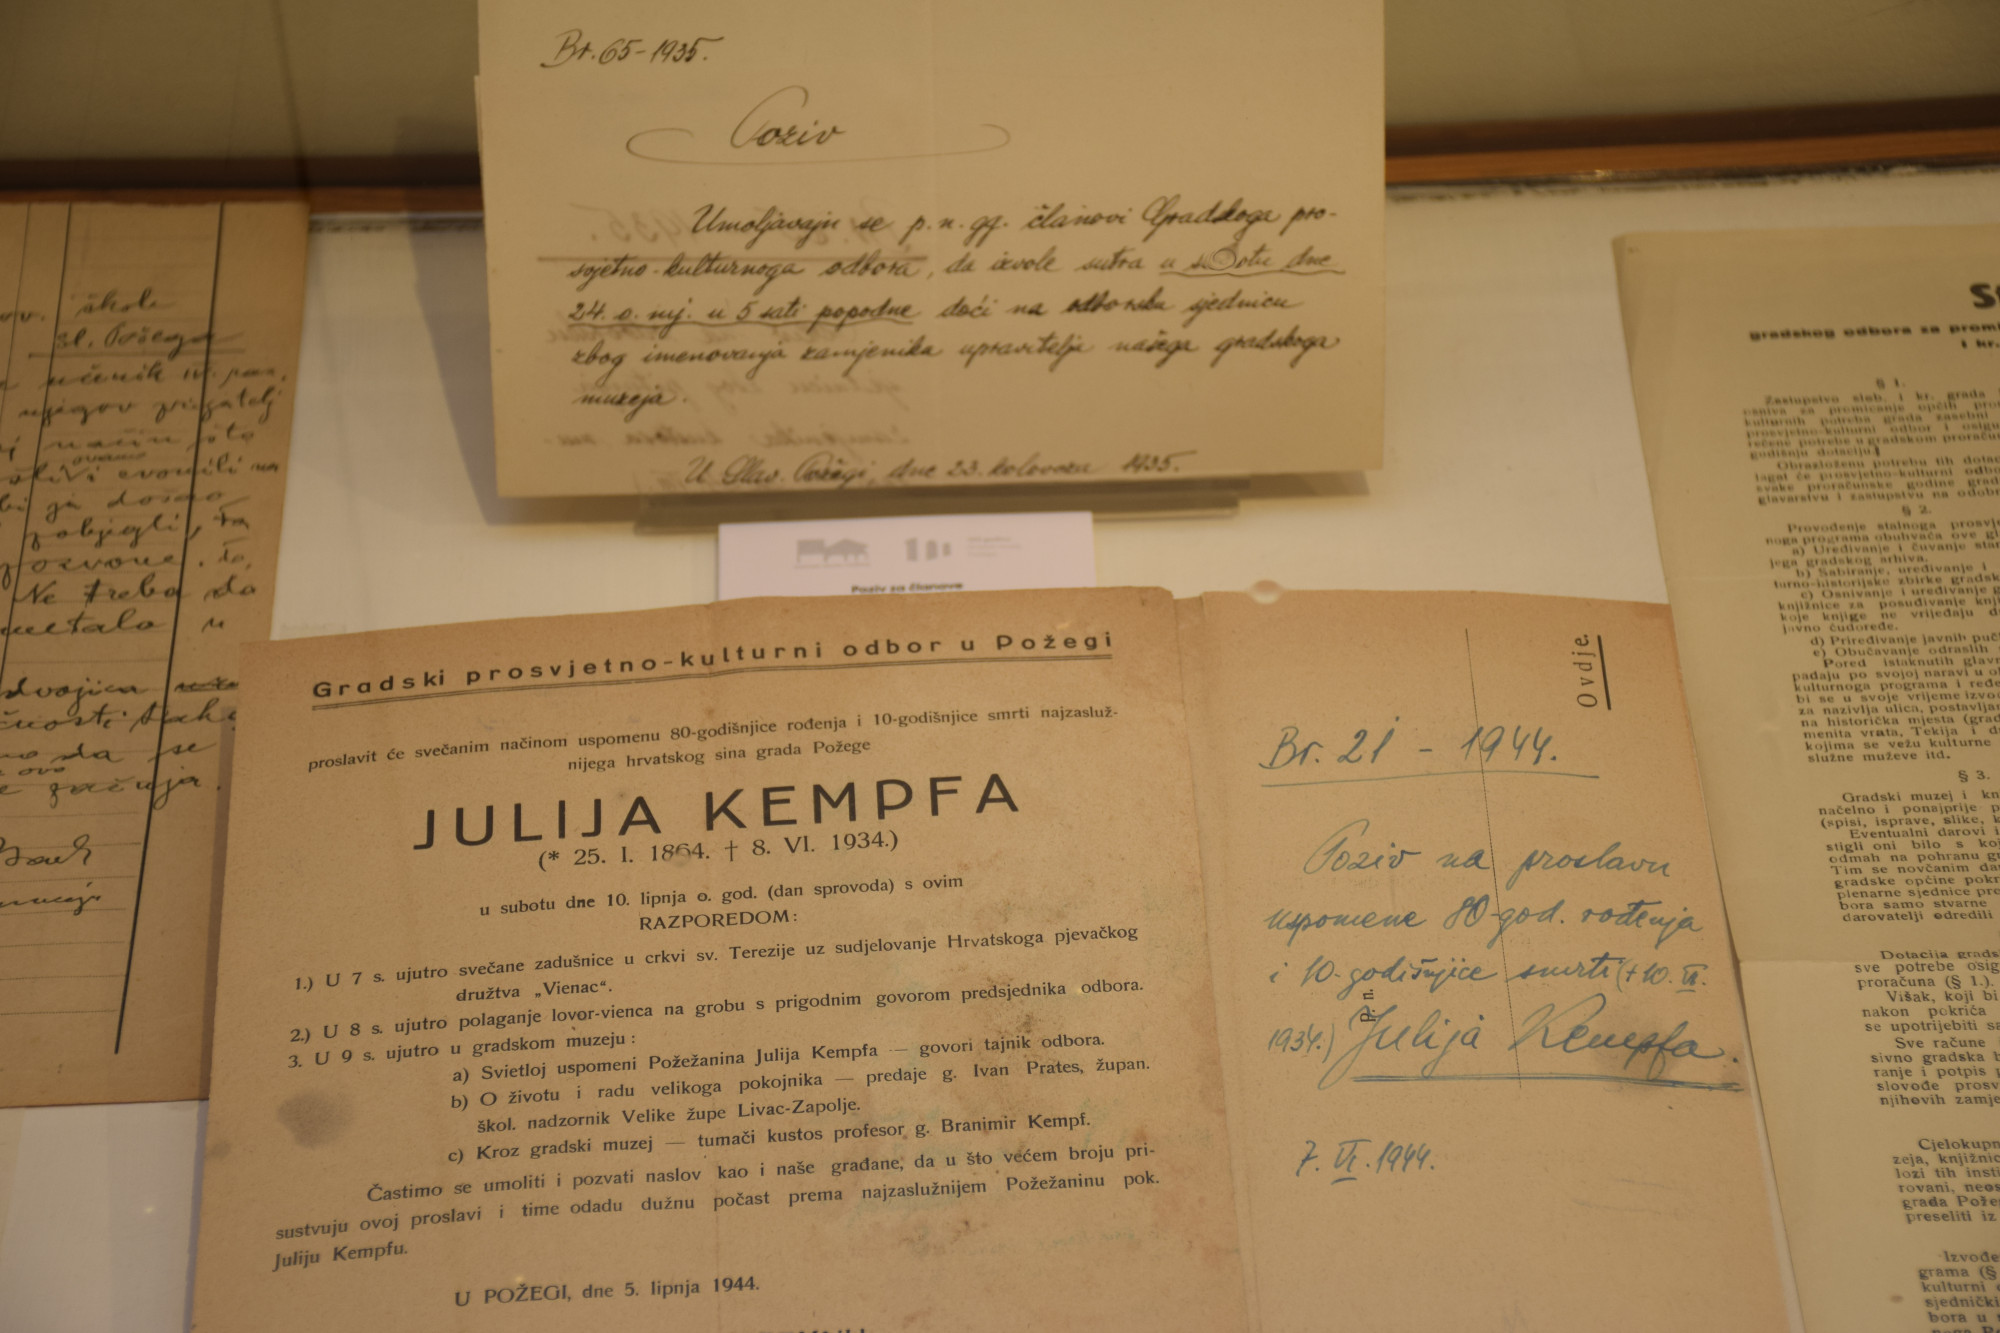 Br. 65-1935.
Poziv
Umoljavaju se p. n. gg. članovi Gradskoga pro-
svjetno-kulturnoga odbora, da izvole sutra u subotu dne
24. o. mj. u 5 sati popodne doći na odborsku sjednicu
zbog imenovanja zamjenika upravitelja našega gradskoga
muzeja.
U Slav. Požegi, dne 23. kolovoza 1935.
škole
sl. Požega
učenik IV. raz.
njegov prijatelj
način što
ovamo
bi ga došao
pobjegli, ta
pozvone. To,
Ne treba da
metalo u
dvojica
da se
ovo
Poziv za članove
Gradski prosvjetno-kulturni odbor u Požegi
proslavit će svečanim načinom uspomenu 80-godišnjice rođenja i 10-godišnjice smrti najzasluž-
nijega hrvatskog sina grada Požege
JULIJA KEMPFA
(* 25. I. 1864. † 8. VI. 1934.)
u subotu dne 10. lipnja o. god. (dan sprovoda) s ovim
RAZPOREDOM:
1.) U 7 s. ujutro svečane zadušnice u crkvi sv. Terezije uz sudjelovanje Hrvatskoga pjevačkog
družtva „Vienac“.
2.) U 8 s. ujutro polaganje lovor-vienca na grobu s prigodnim govorom predsjednika odbora.
3. U 9 s. ujutro u gradskom muzeju:
a) Svietloj uspomeni Požežanina Julija Kempfa — govori tajnik odbora.
b) O životu i radu velikoga pokojnika — predaje g. Ivan Prates, župan.
škol. nadzornik Velike župe Livac-Zapolje.
c) Kroz gradski muzej — tumači kustos profesor g. Branimir Kempf.
Častimo se umoliti i pozvati naslov kao i naše građane, da u što većem broju pri-
sustvuju ovoj proslavi i time odadu dužnu počast prema najzaslužnijem Požežaninu pok.
Juliju Kempfu.
U POŽEGI, dne 5. lipnja 1944.
Ovdje
Br. 21 - 1944.
Poziv na proslavu
uspomene 80-god. rođenja
i 10-godišnjice smrti († 10. VI.
P. n.
1934.) Julija Kempfa.
7. VI. 1944.
gradskog odbora za promi
i kr.
§ 1.
Zastupstvo slob. i kr. grada
osniva za promicanje općih pro
kulturnih potreba grada zasebni
prosvjetno-kulturni odbor i osigu
rečene potrebe u gradskom proraču
godišnju dotaciju.
Obrazloženu potrebu tih dotac
lagat će prosvjetno-kulturni odbo
svake proračunske godine grad
glavarstvu i zastupstvu na odobr
§ 2.
Provođenje stalnoga prosvje
noga programa obuhvaća ove gl
a) Uređivanje i čuvanje star
jega gradskog arhiva.
b) Sabiranje, uređivanje i
turno-historijske zbirke gradsk
c) Osnivanje i uređivanje g
knjižnice za posuđivanje knji
koje knjige ne vrijeđaju d
javno ćudoređe.
d) Priređivanje javnih puč
e) Obučavanje odraslih
Pored istaknutih glav
padaju po svojoj naravi u o
kulturnoga programa i rede
bi se u svoje vrijeme izvo
za nazivlja ulica, postavljan
na historička mjesta (grad
menita vrata, Tekija i d
kojima se vežu kulturne
služne muževe itd.
§ 3.
Gradski muzej i kn
načelno i ponajprije p
(spisi, isprave, slike, k
Eventualni darovi i
stigli oni bilo s koj
odmah na pohranu g
Tim se novčanim da
gradske općine pokr
plenarne sjednice pre
bora samo stvarne
darovatelji odredili
Dotacija gradsk
sve potrebe osig
proračuna (§ 1.).
Višak, koji bi
nakon pokrića
se upotrijebiti sa
Sve račune
sivno gradska b
ranje i potpis
slovođe prosv
njihovih zamje
Cjelokupn
zeja, knjižnic
lozi tih insti
rovani, neos
grada Požeg
preseliti iz
Izvođe
grama (§
kulturni
sjednički
bora u